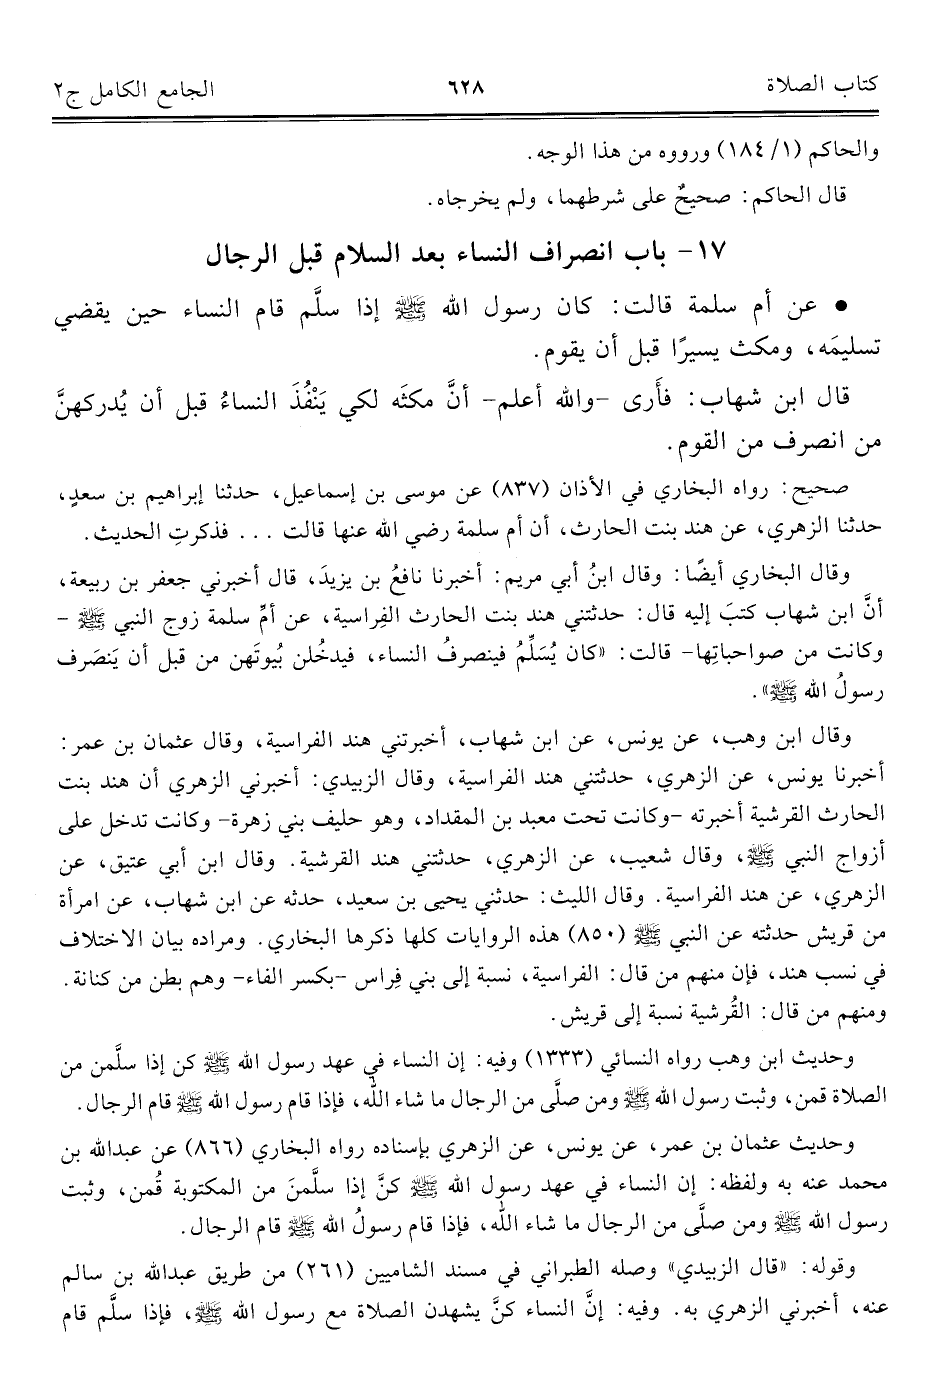 كتاب الصلاة ٦٢٨ الجامع الكامل ج٢
والحاكم (١/ ١٨٤) ورووه من هذا الوجه.
قال الحاكم: صحيحٌ على شرطهما، ولم يخرجاه.
١٧- باب انصراف النساء بعد السلام قبل الرجال
● عن أم سلمة قالت: كان رسول الله ﷺ إذا سلَّم قام النساء حين يقضي
تسليمَه، ومكث يسيرًا قبل أن يقوم.
قال ابن شهاب: فأَرى -والله أعلم- أنَّ مكثَه لكي يَنْفُذَ النساءُ قبل أن يُدركهنَّ
من انصرف من القوم.
صحيح: رواه البخاري في الأذان (٨٣٧) عن موسى بن إسماعيل، حدثنا إبراهيم بن سعدٍ،
حدثنا الزهري، عن هند بنت الحارث، أن أم سلمة رضي الله عنها قالت ... فذكرتِ الحديث.
وقال البخاري أيضًا: وقال ابنُ أبي مريم: أخبرنا نافعُ بن يزيدَ، قال أخبرني جعفر بن ربيعة،
أنَّ ابن شهاب كتبَ إليه قال: حدثتني هند بنت الحارث الفِراسية، عن أمِّ سلمة زوج النبي ﷺ -
وكانت من صواحباتِها- قالت: «كان يُسَلِّمُ فينصرفُ النساء، فيدخُلن بُيوتَهن من قبل أن يَنصَرف
رسولُ الله ﷺ».
وقال ابن وهب، عن يونس، عن ابن شهاب، أخبرتني هند الفراسية، وقال عثمان بن عمر:
أخبرنا يونس، عن الزهري، حدثتني هند الفراسية، وقال الزبيدي: أخبرني الزهري أن هند بنت
الحارث القرشية أخبرته -وكانت تحت معبد بن المقداد، وهو حليف بني زهرة- وكانت تدخل على
أزواج النبي ﷺ، وقال شعيب، عن الزهري، حدثتني هند القرشية. وقال ابن أبي عتيق، عن
الزهري، عن هند الفراسية. وقال الليث: حدثني يحيى بن سعيد، حدثه عن ابن شهاب، عن امرأة
من قريش حدثته عن النبي ﷺ (٨٥٠) هذه الروايات كلها ذكرها البخاري. ومراده بيان الاختلاف
في نسب هند، فإن منهم من قال: الفراسية، نسبة إلى بني فِراس -بكسر الفاء- وهم بطن من كنانة.
ومنهم من قال: القُرشية نسبة إلى قريش.
وحديث ابن وهب رواه النسائي (١٣٣٣) وفيه: إن النساء في عهد رسول الله ﷺ كن إذا سلَّمن من
الصلاة قمن، وثبت رسول الله ﷺ ومن صلَّى من الرجال ما شاء الله، فإذا قام رسول الله ﷺ قام الرجال.
وحديث عثمان بن عمر، عن يونس، عن الزهري بإسناده رواه البخاري (٨٦٦) عن عبدالله بن
محمد عنه به ولفظه: إن النساء في عهد رسول الله ﷺ كنَّ إذا سلَّمنَ من المكتوبة قُمن، وثبت
رسول الله ﷺ ومن صلَّى من الرجال ما شاء الله، فإذا قام رسولُ الله ﷺ قام الرجال.
وقوله: «قال الزبيدي» وصله الطبراني في مسند الشاميين (٢٦١) من طريق عبدالله بن سالم
عنه، أخبرني الزهري به. وفيه: إنَّ النساء كنَّ يشهدن الصلاة مع رسول الله ﷺ، فإذا سلَّم قام